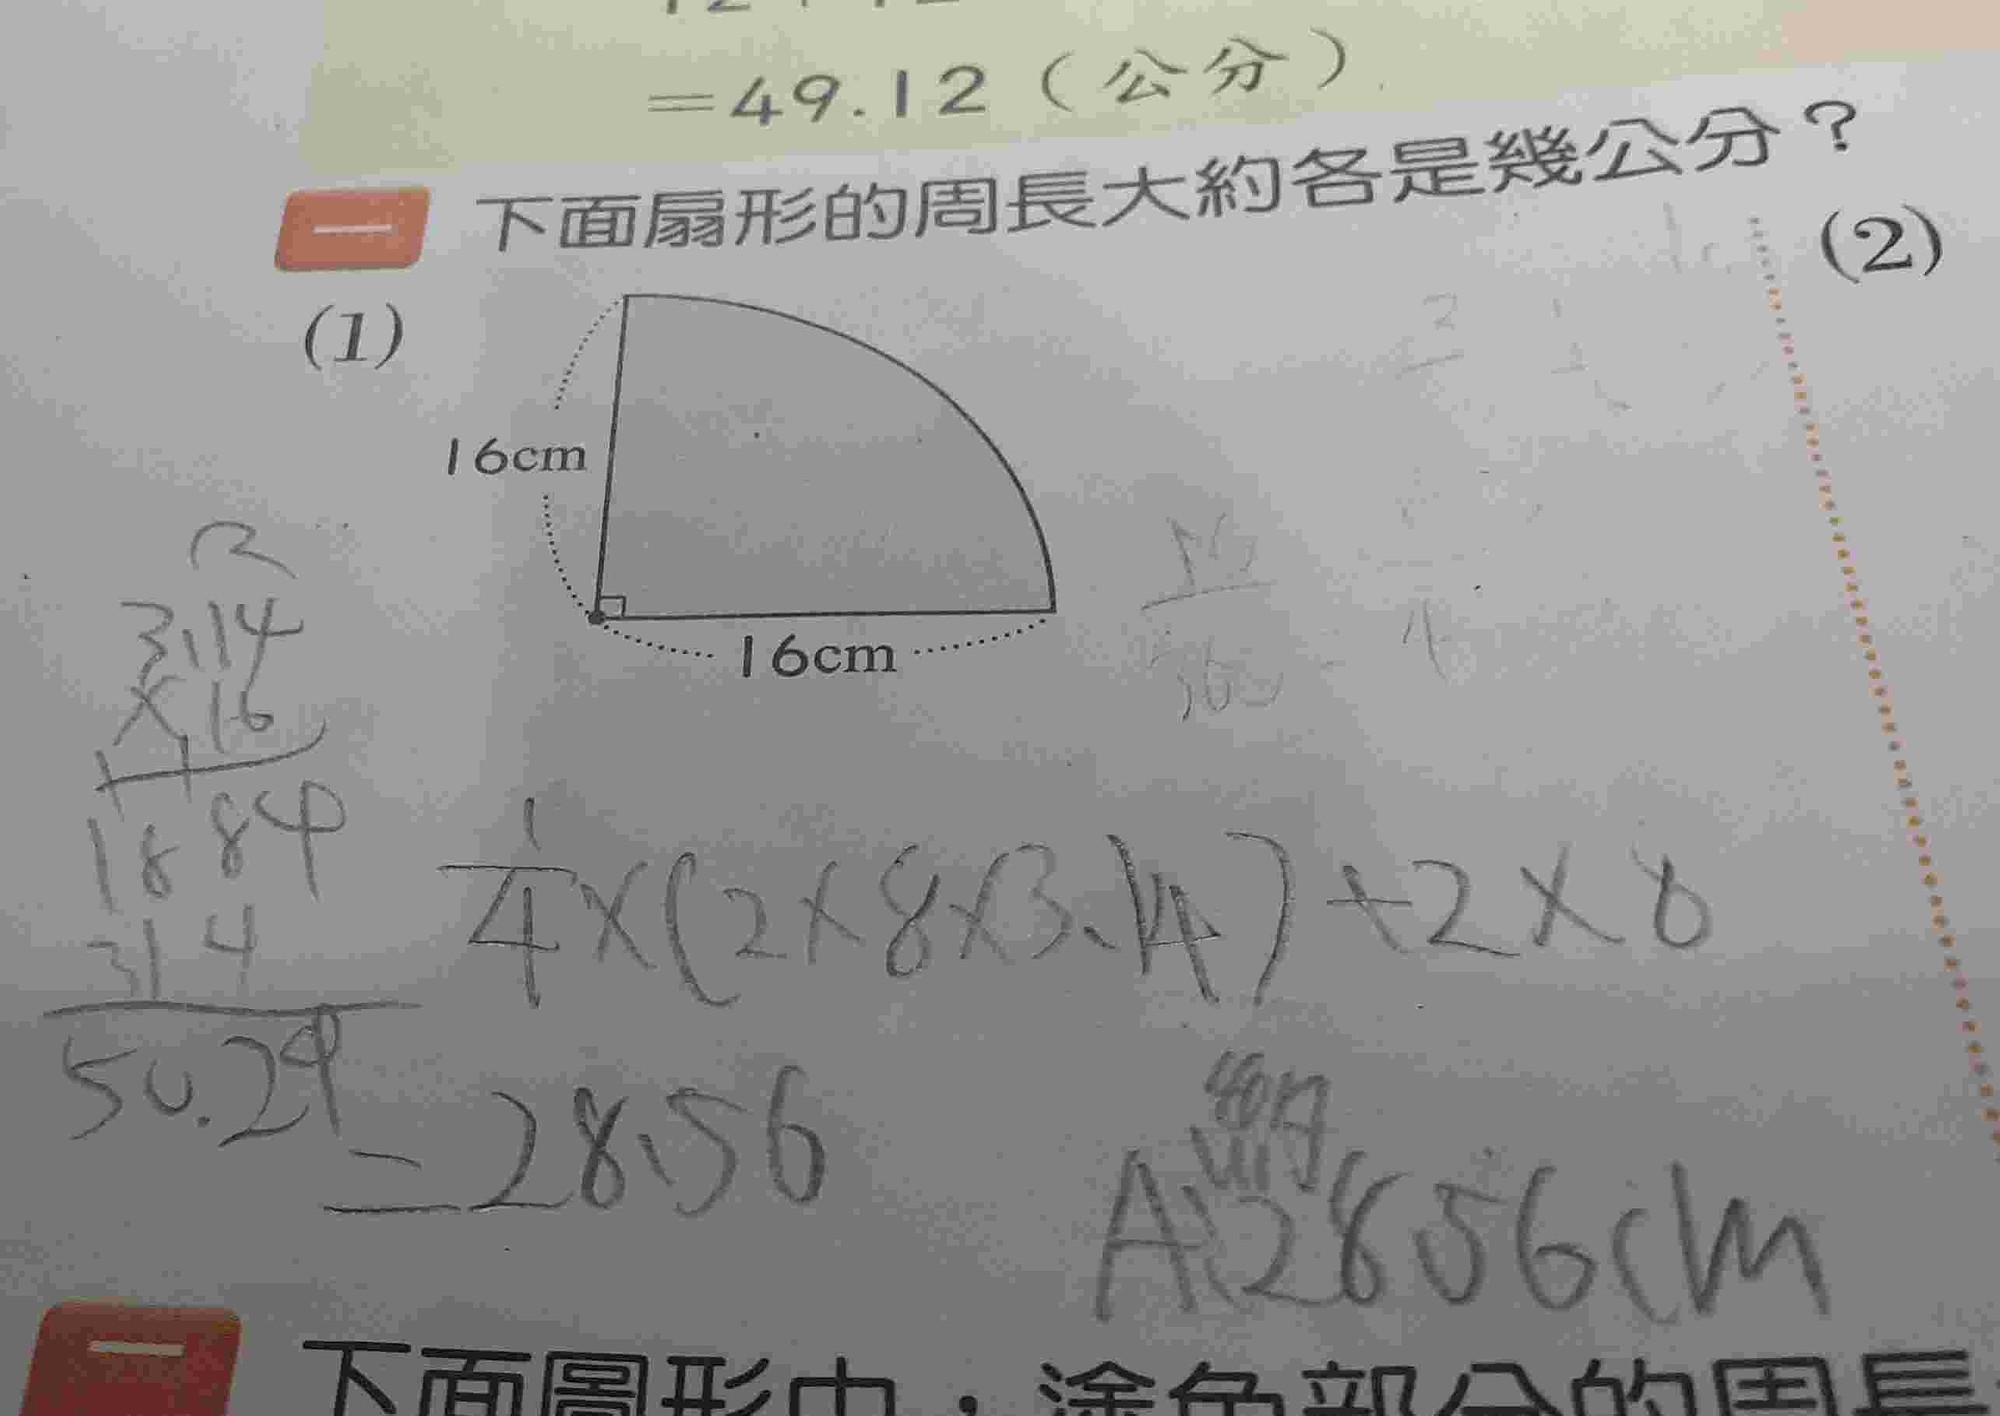 =49.12(公分)
一 下面扇形的周長大約各是幾公分?
(1)
(2)
16cm
16cm
2
3.14
×16
1884
314
50.24
1/4×(2×8×3.14)+2×8
=28.56
A:28.56cm
二 下面圖形中，塗色部分的周長